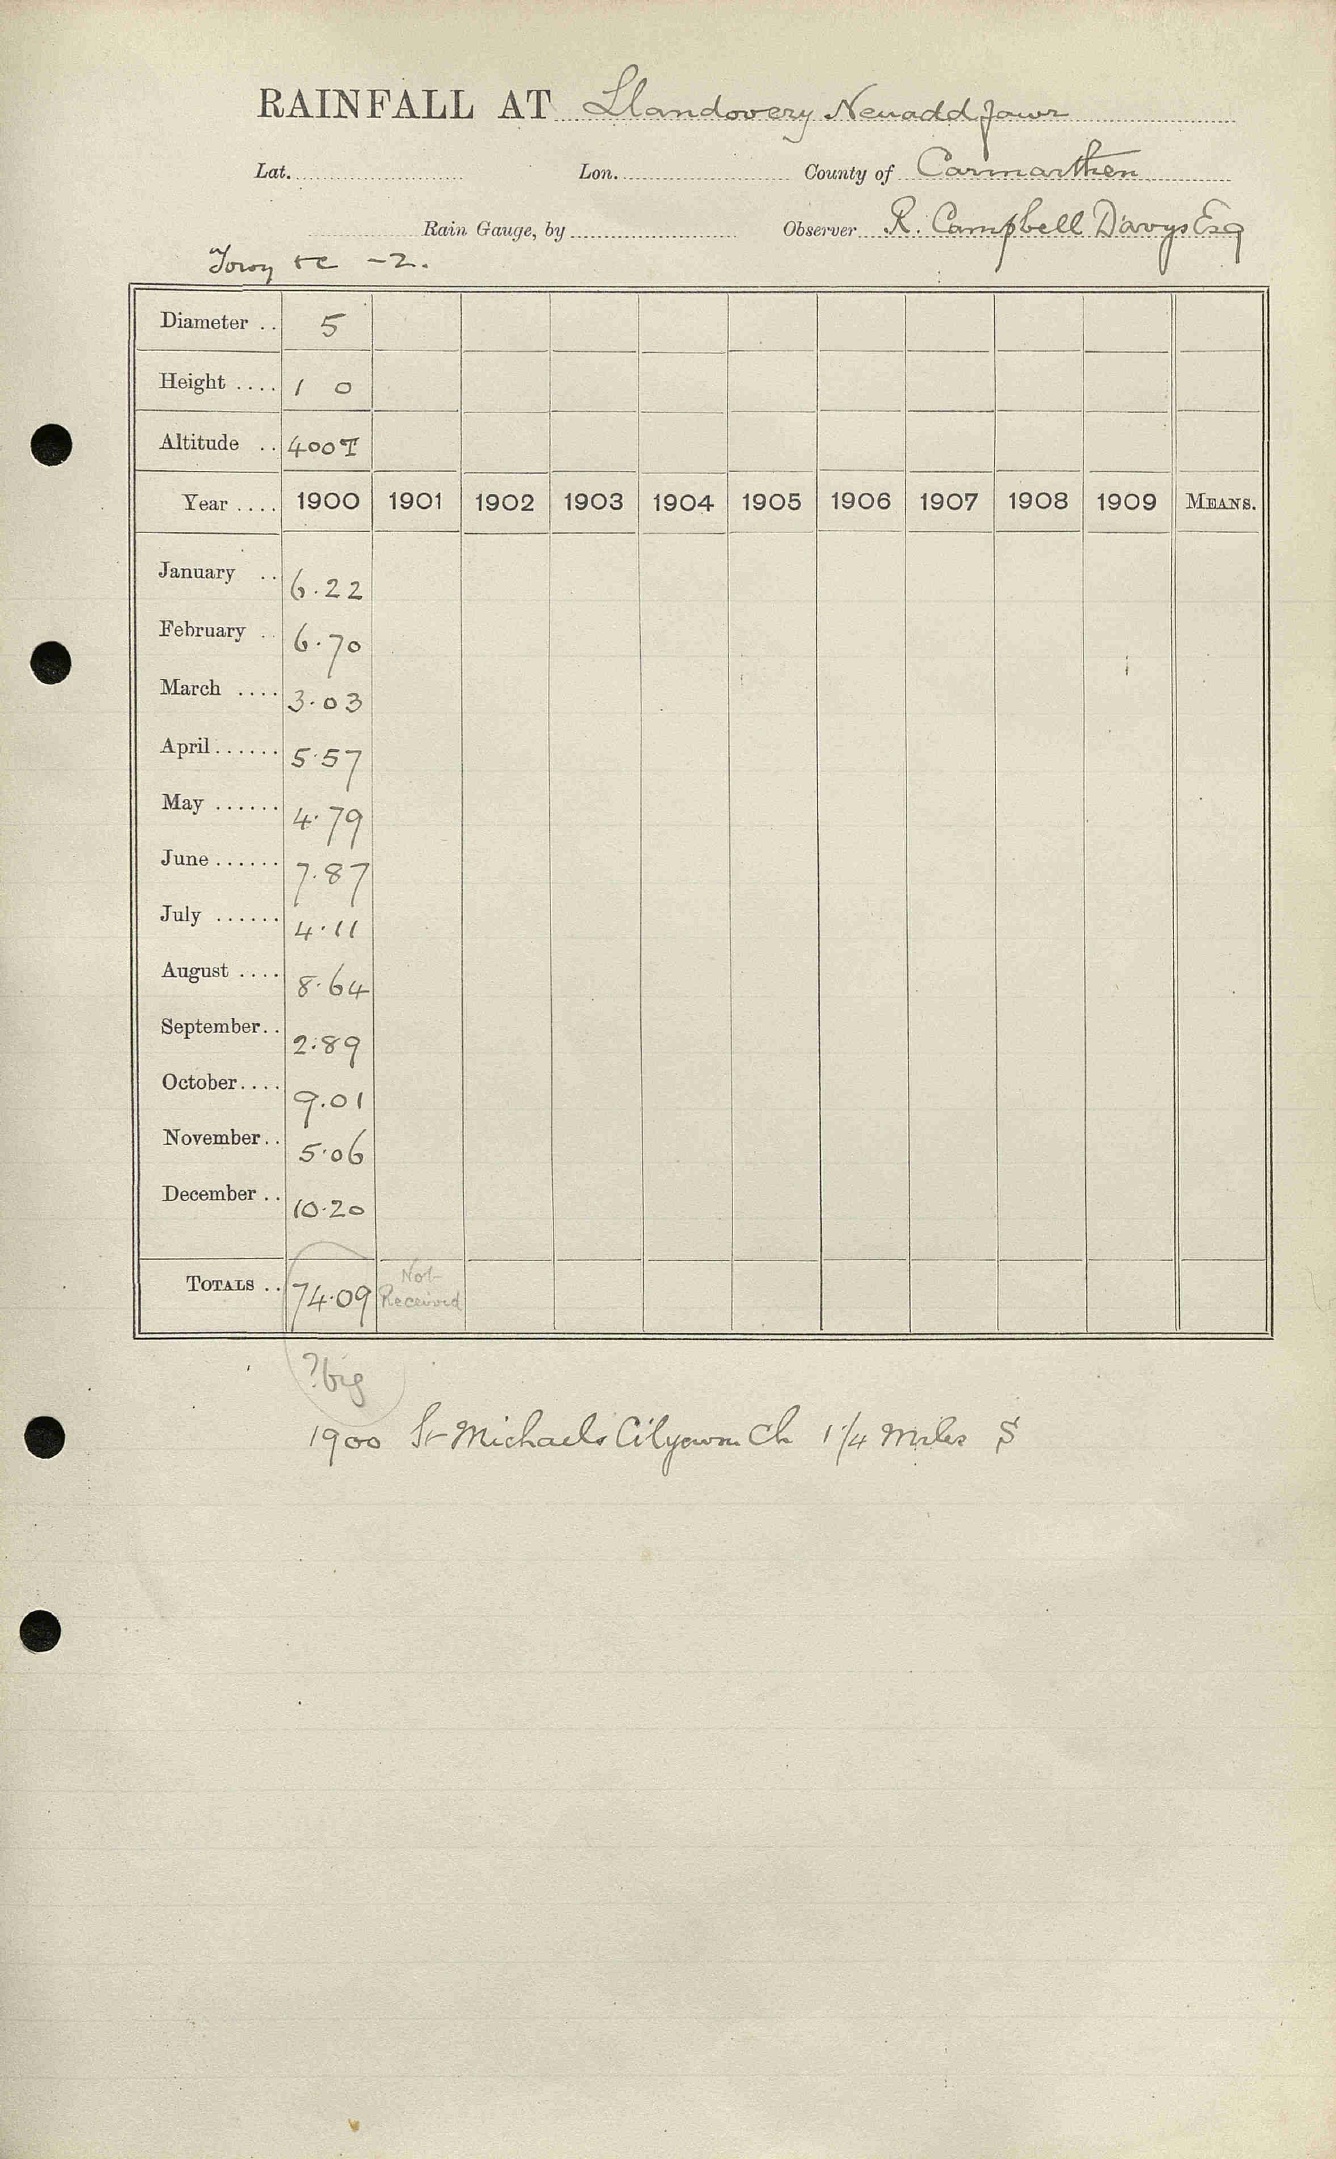 RAINFALL AT Llandovery Neuadd fawr
Lat. Lon. County of Carmarthen
Rain Gauge, by Observer R. Campbell Davys Esq
Towy &c -2.
Diameter .. 5
Height .... 1 0
Altitude .. 400T
Year .... 1900 1901 1902 1903 1904 1905 1906 1907 1908 1909 MEANS.
January .. 6.22
February .. 6.70
March .... 3.03
April ...... 5.57
May ...... 4.79
June ...... 7.87
July ...... 4.11
August .... 8.64
September .. 2.89
October .... 9.01
November .. 5.06
December .. 10.20
TOTALS .. 74.09 Not Received
? big
1900 St Michaels Cilycwm Ch 1 1/4 Miles S